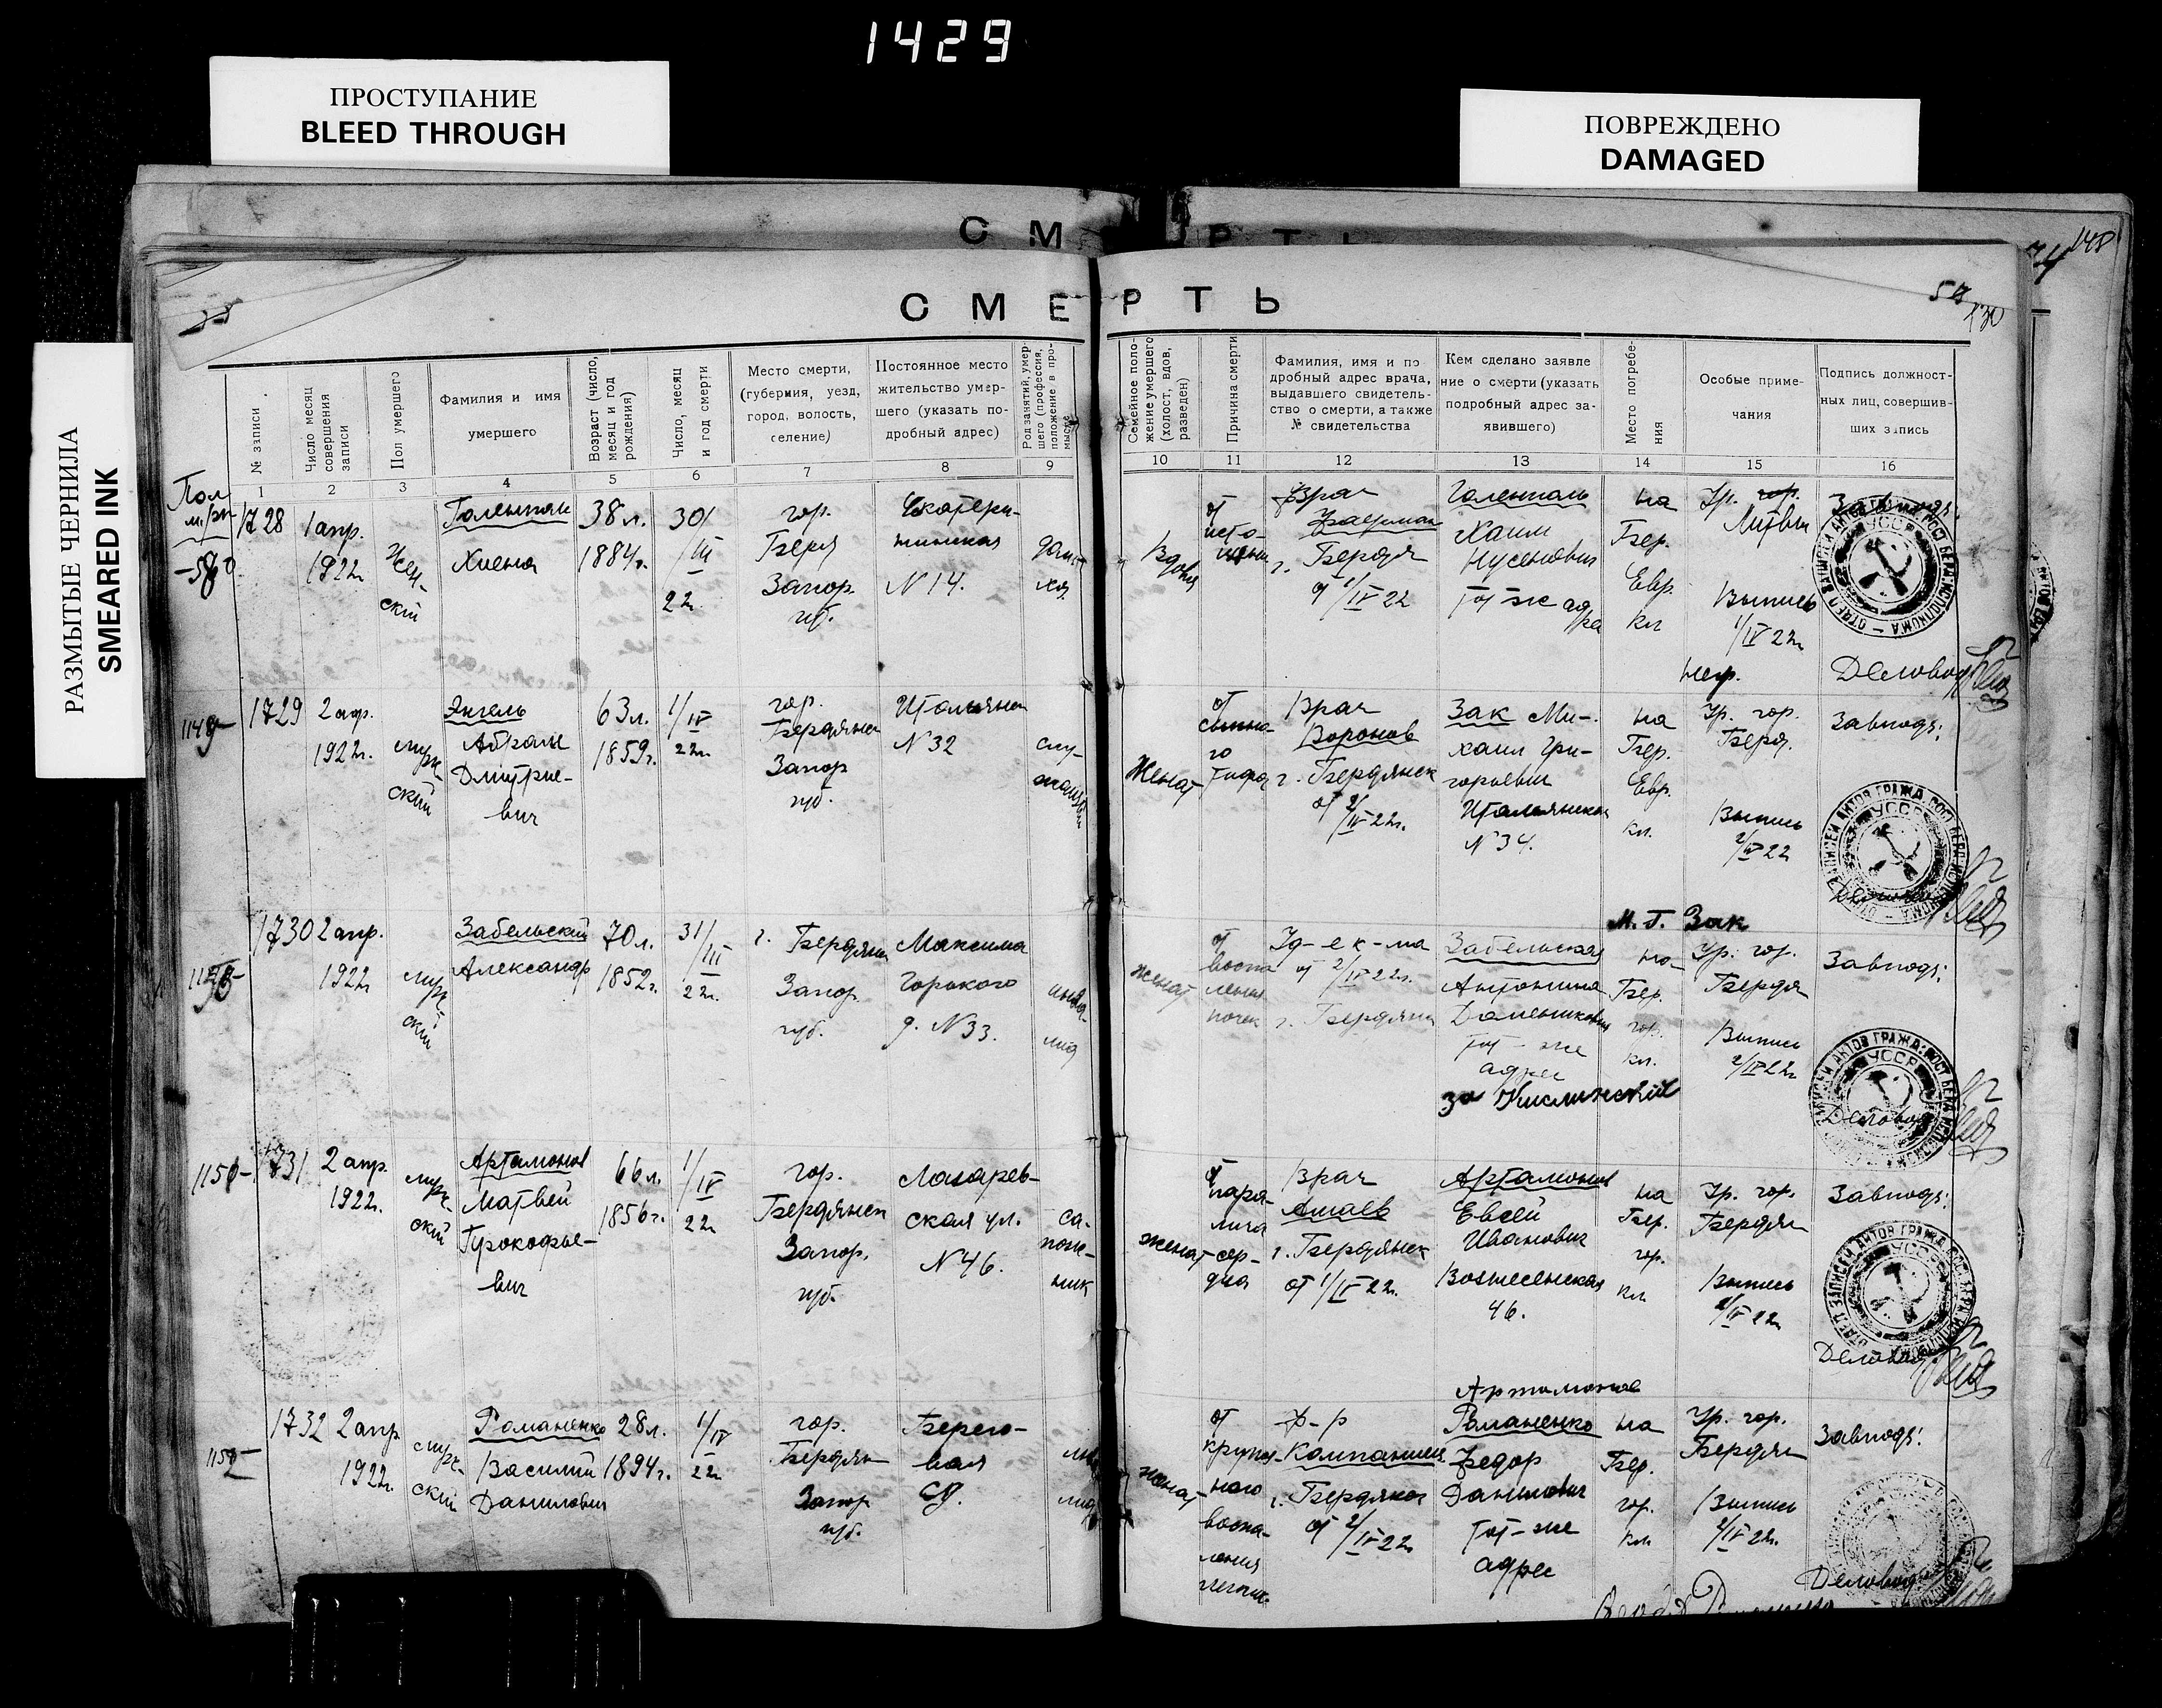 1429
ПРОСТУПАНИЕ
BLEED THROUGH
ПОВРЕЖДЕНО
DAMAGED
РАЗМЫТЫЕ ЧЕРНИЛА
SMEARED INK
148
С М Е Р Т Ь
130
№ записи
Число месяц совершения записи
Пол умершего
Фамилия и имя
умершего
Возраст (число, месяц и год рождения)
Число, месяц и год смерти
Место смерти,
(губерния, уезд,
город, волость,
селение)
Постоянное место
жительство умер-
шего (указать по-
дробный адрес)
Род занятий, умер-
шего (профессия,
положение в про-
мысле
Семейное поло-
жение умершего
(холост, вдов,
разведен)
Причина смерти
Фамилия, имя и по
дробный адрес врача,
выдавшего свидетель-
ство о смерти, а также
№ свидетельства
Кем сделано заявле
ние о смерти (указать
подробный адрес за-
явившего)
Место погребе-
ния
Особые приме-
чания
Подпись должност-
ных лиц, совершив-
ших запись
1 2 3 4 5 6 7 8 9 10 11 12 13 14 15 16
1728
1 апр.
1922г.
Жен-
ский
Хиена
38 л.
1884г.
30/III
22г.
гор.
Бердя
Запор.
губ.
Екатери-
нинская
N 14.
Вдова
Врач
г. Бердя
от 1/IV 22
Хаим
Нусенович
тот-же адре
на
Бер.
Евр.
кл
Гр. гор.
Выпись
1/IV 22г.
Завподз:
Деловод
1729
2 апр.
1922г.
муж-
ский
Энгель
Абрам
Дмитрие-
вич
63 л.
1859г.
1/IV
22г.
гор.
Бердянск
Запор
губ.
Итальянск
N 32
слу-
жащий
Женат
от
сыпно-
го
тифа
Врач
Воронов
г. Бердянск
от 2/IV 22г.
Зак Ми-
хаил Гри-
горьевич
Итальянская
N 34.
на
Бер.
Евр.
кл.
Гр. гор.
Берд.
Выпись
2/IV 22
Завподз:
М. Г. Зак
1730
2 апр.
1922г.
муж-
ский
Забельский
Александр
70 л.
1852г.
31/III
22г.
г. Бердянск
Запор.
губ.
Максима
Горького
д. N 33.
инва-
лид
женат
от
воспа
ления
почек
от 2/IV 22г.
г. Бердянск
Забельская
Антонина
тот-же
адрес
на
Бер.
гор.
кл.
Гр. гор.
Бердя
Выпись
2/IV 22г
Завподз:
Деловод
1731
2 апр.
1922г.
муж-
ский
Артамонов
Матвей
Прокофье-
вич
66 л.
1856г.
1/IV
22г
гор.
Бердянск
Запор.
губ.
Лазарев-
ская ул.
N 46.
са-
пож-
ник
женат
от
пара-
лича
сер-
дца
Врач
г. Бердянск
от 1/IV 22г.
Артамонов
Евсей
Иванович
Вознесенская
46.
на
Бер.
гор.
кл.
Гр. гор.
Бердян
Выпись
2/IV 22г
Завподз:
Деловод
Артамонов
1732
2 апр.
1922г.
муж-
ский
Романенко
Василий
Данилович
28 л.
1894г.
1/IV
22г
гор.
Бердян
Запор
губ.
Берего-
вая
женат
от
крупоз-
ного
воспа-
ления
легких.
Д-р
Компаниец
г. Бердянск
от 2/IV 22г
Романенко
Федор
Данилович
тот-же
адрес
на
Бер.
гор.
кл.
Гр. гор.
Бердян
Выпись
2/IV 22г.
Завподз:
Деловод